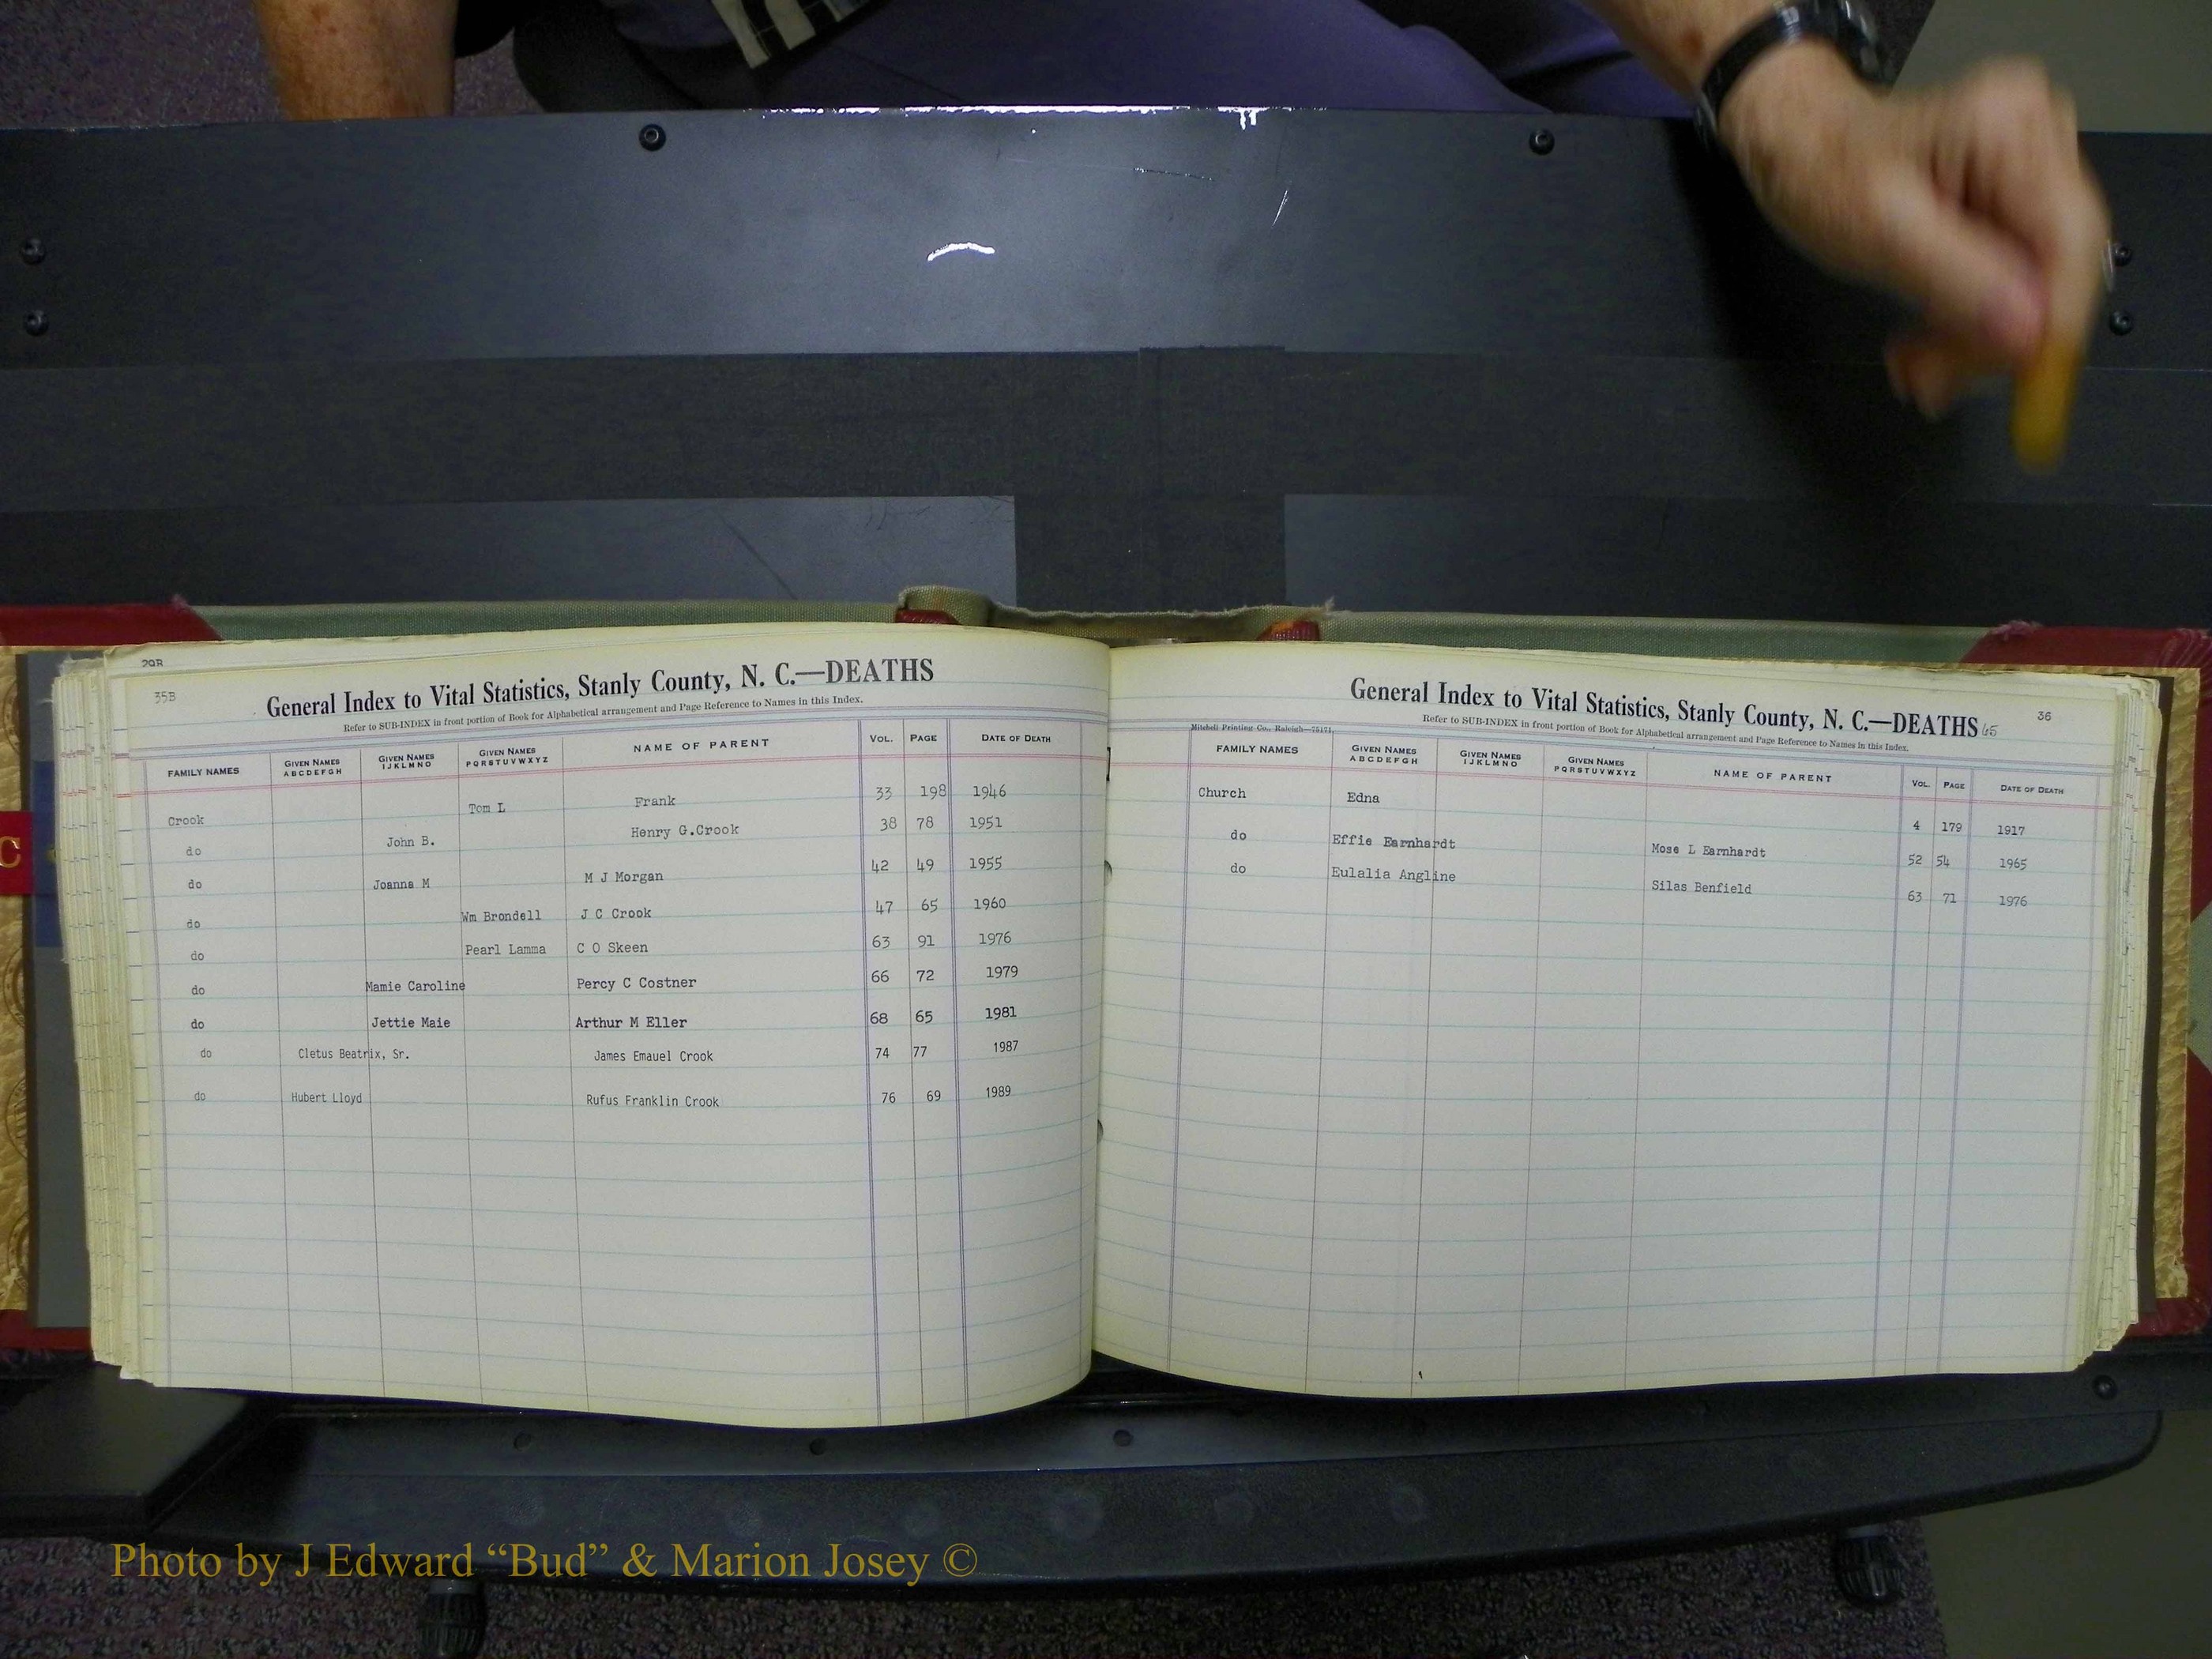 29B
35B
General Index to Vital Statistics, Stanly County, N. C.—DEATHS
Refer to SUB-INDEX in front portion of Book for Alphabetical arrangement and Page Reference to Names in this Index.
FAMILY NAMES GIVEN NAMES ABCDEFGH GIVEN NAMES IJKLMNO GIVEN NAMES PQRSTUVWXYZ NAME OF PARENT VOL. PAGE DATE OF DEATH
Crook Tom L Frank 33 198 1946
do John B. Henry G.Crook 38 78 1951
do Joanna M M J Morgan 42 49 1955
do Wm Brondell J C Crook 47 65 1960
do Pearl Lamma C O Skeen 63 91 1976
do Mamie Caroline Percy C Costner 66 72 1979
do Jettie Maie Arthur M Eller 68 65 1981
do Cletus Beatrix, Sr. James Emauel Crook 74 77 1987
do Hubert Lloyd Rufus Franklin Crook 76 69 1989
36
General Index to Vital Statistics, Stanly County, N. C.—DEATHS 65
Refer to SUB-INDEX in front portion of Book for Alphabetical arrangement and Page Reference to Names in this Index.
Mitchell Printing Co., Raleigh—75171
FAMILY NAMES GIVEN NAMES ABCDEFGH GIVEN NAMES IJKLMNO GIVEN NAMES PQRSTUVWXYZ NAME OF PARENT VOL. PAGE DATE OF DEATH
Church Edna 4 179 1917
do Effie Earnhardt Mose L Earnhardt 52 54 1965
do Eulalia Angline Silas Benfield 63 71 1976
C
Photo by J Edward “Bud” & Marion Josey ©